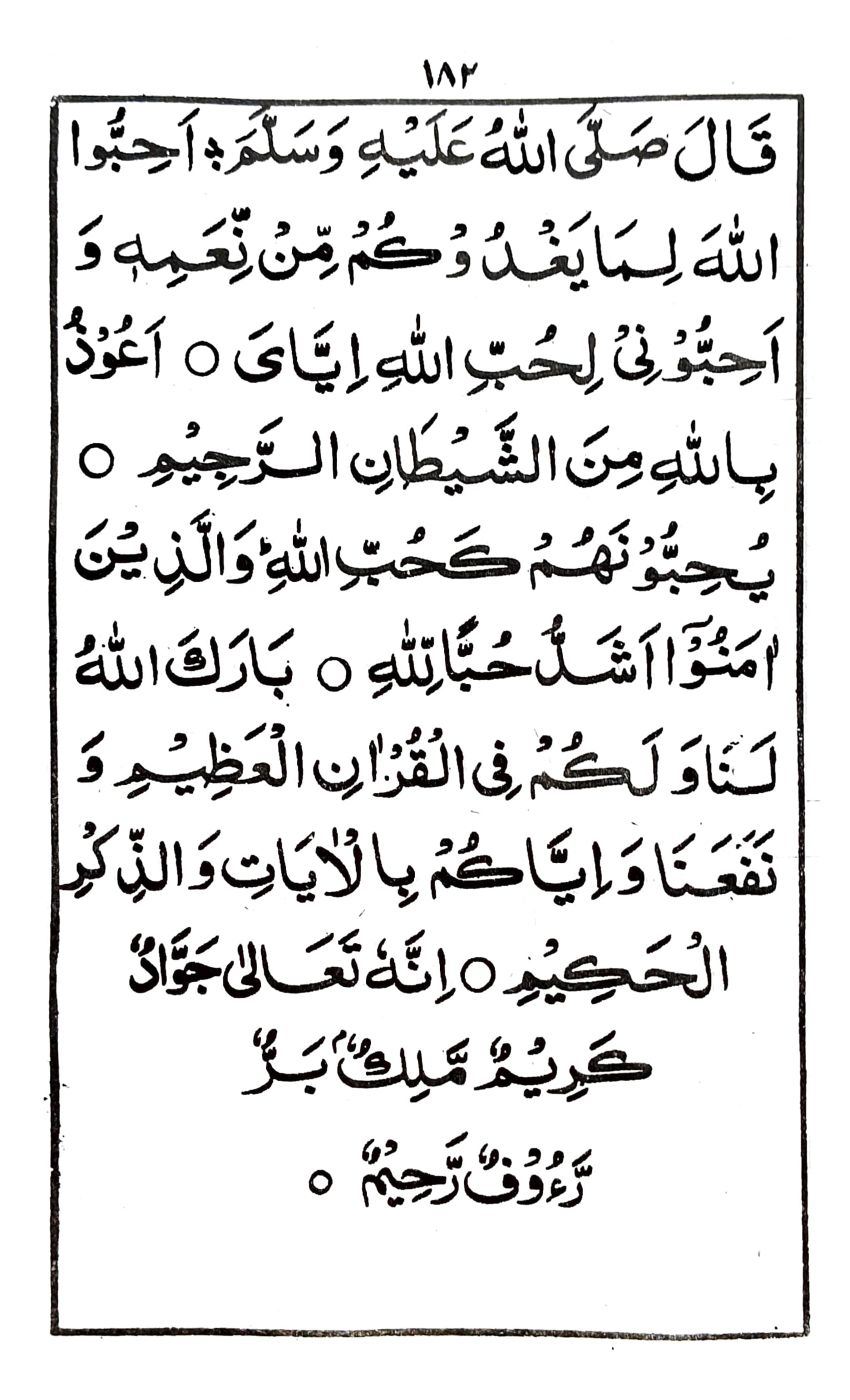 ١٨٢
قَالَ صَلَّى اللّٰهُ عَلَيْهِ وَسَلَّمَ ؞ اَحِبُّوا
اللّٰهَ لِمَا يَغْدُوْكُمْ مِّنْ نِّعَمِهٖ وَ
اَحِبُّوْنِيْ لِحُبِّ اللّٰهِ اِيَّايَ ○ اَعُوْذُ
بِاللّٰهِ مِنَ الشَّيْطَانِ الرَّجِيْمِ ○
يُحِبُّوْنَهُمْ كَحُبِّ اللّٰهِ ؕ وَالَّذِيْنَ
اٰمَنُوْٓا اَشَدُّ حُبًّا لِّلّٰهِ ○ بَارَكَ اللّٰهُ
لَنَا وَلَكُمْ فِى الْقُرْاٰنِ الْعَظِيْمِ وَ
نَفَعَنَا وَاِيَّاكُمْ بِالْاٰيَاتِ وَالذِّكْرِ
الْحَكِيْمِ ○ اِنَّهٗ تَعَالٰى جَوَّادٌ
كَرِيْمٌ مَّلِكٌۢ بَرٌّ
رَّءُوْفٌ رَّحِيْمٌ ○